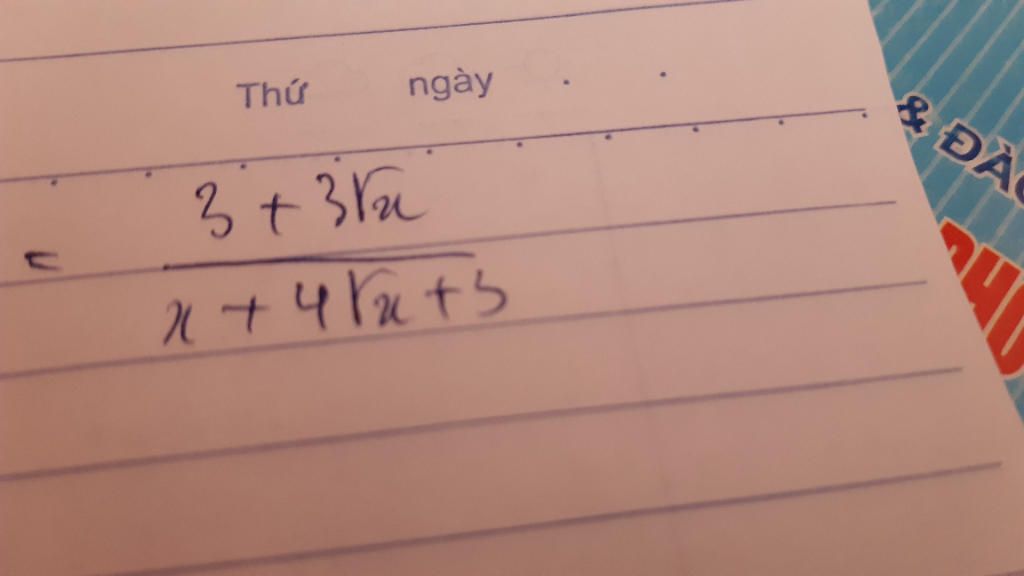 Thứ ngày . .
= (3 + 3√x) / (x + 4√x + 3)
& ĐÀ